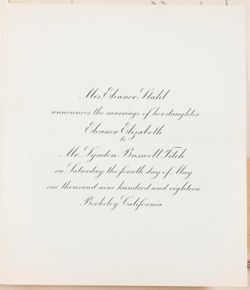 Mrs. Eleanor Stahl
announces the marriage of her daughter
Eleanor Elizabeth
to
Mr. Lyndon Fitch
on Saturday, the fourth day of May
one thousand nine hundred and eighteen
Berkeley, California